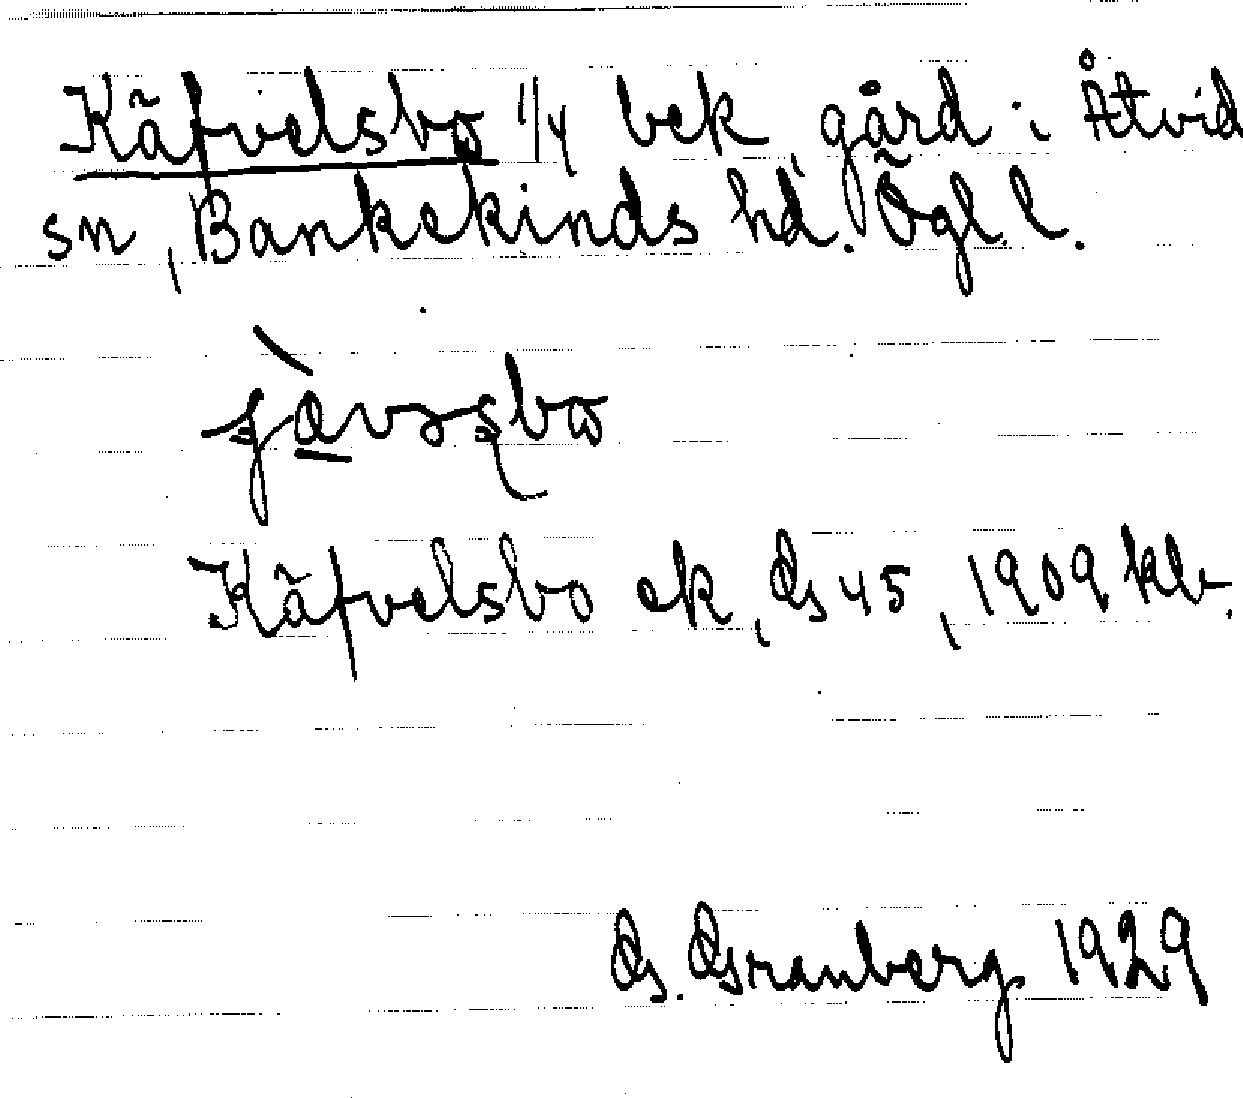 Käfvelsbo 1/4 bek gård i Åtvid
sn, Bankekinds hd. Ögl. l.
Käfvelsbo ek, Gs 45, 1909 kbr.
G. Granberg 1929